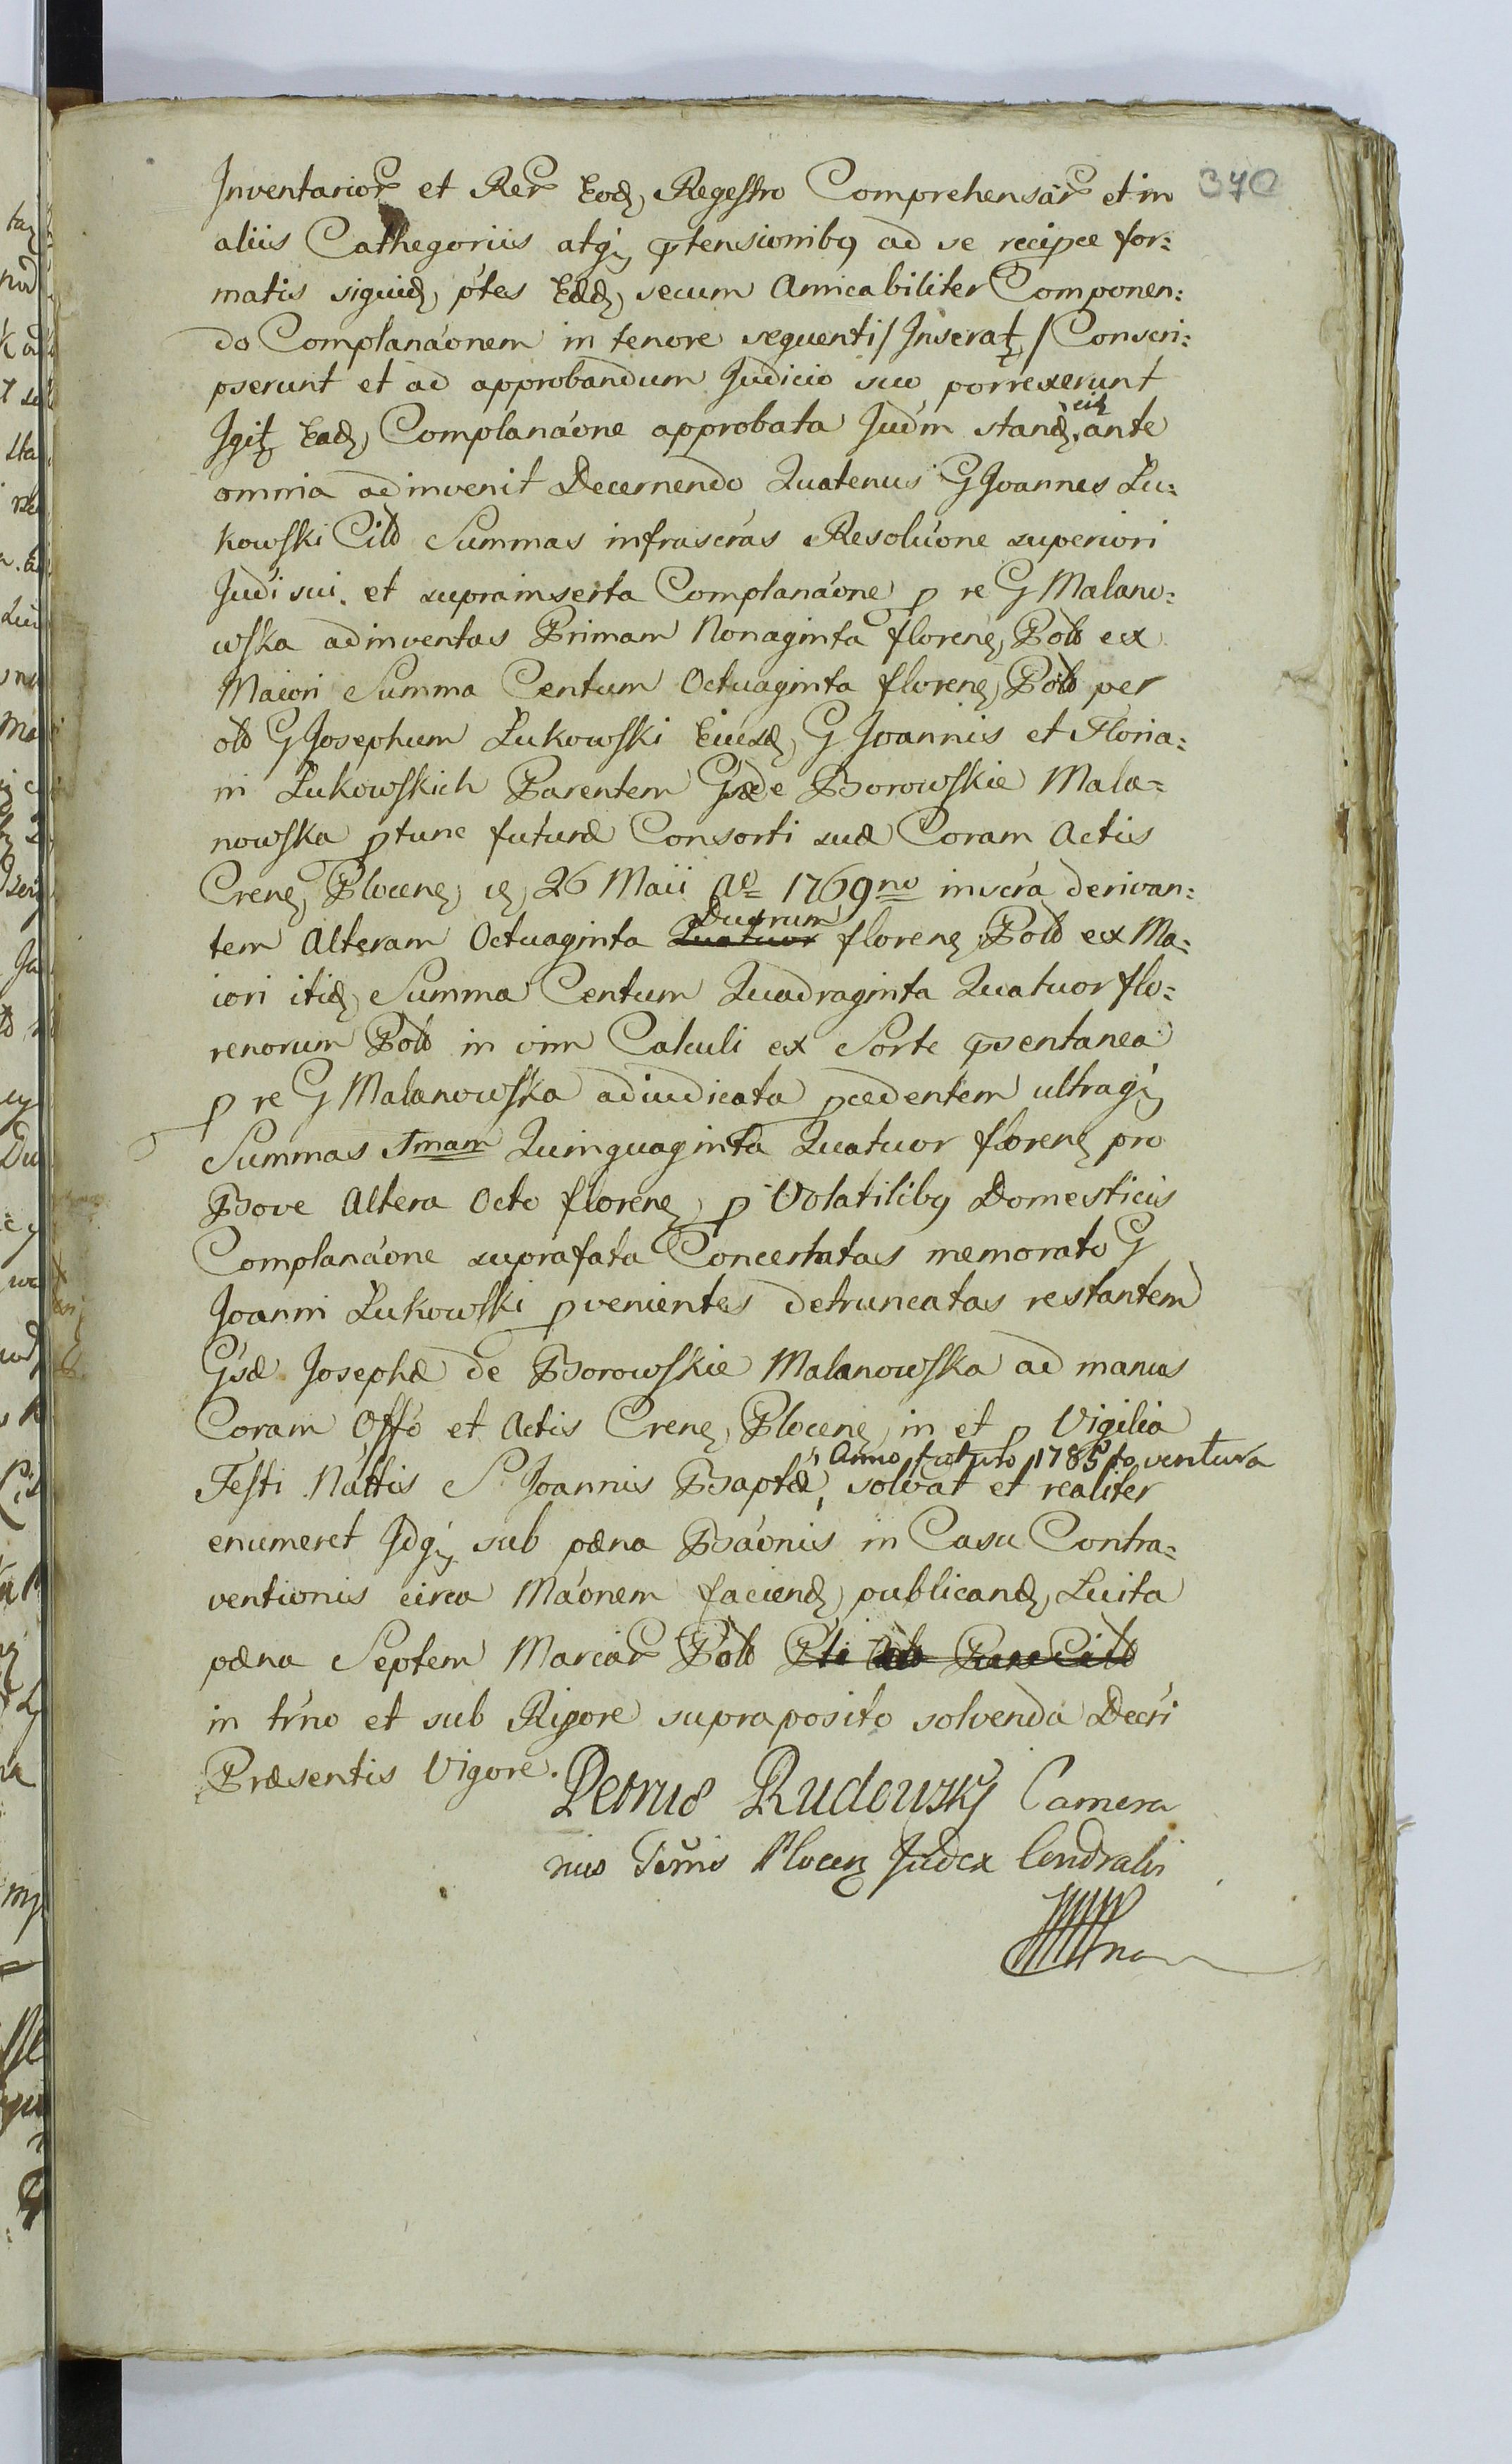 370
Inventarior et Rer Eod, Regestro Comprehensar et in
aliis Cathegoriis atq, ptensionibq ad se recipce for:
matis siquid, ptes Eaed, secum Amicabiliter Componen:
do Complanáonem in tenore sequenti / Inserat / Conscri:
pserunt et ad approbandum Judicio suo porrexerunt
Igit Ead, Complanáone approbata Judm stand, ante
omnia adinvenit Decernendo Quatenus G Joannes Łu:
kowski Citd Summas infrascras Resolúone superiori
Judi sui. et suprainserta Complanáone p re G Malano:
wska adinventas Primam Nonaginta floren, Pold ex
Maiori Summa Centum Octuaginta floren, Pold per
old G Josephum Łukowski Eiusd, G Joannis et Floria:
ni Łukowskich Parentem Gsae de Borowskie Mala=
nowska ptunc futurae Consorti suae Coram Actis
Cren, Plocen, 26 Maii Ao 1769no inscra derivan:
Duarum
tem Alteram Octuaginta Quatuor floren, Pold ex Ma:
iori itid, Summa Centum Quadraginta Quatuor flo:
renorum Pold in vim Calculi ex Sorte psentanea
p re G Malanowska adiudicata pcedentem ultraq,
Summas Imam Quinquaginta Quatuor floren, pro
Bove Altera Octo floren, p Volatilibq Domesticis
Complanáone suprafata Concertatas memorato G
Joanni Łukowski pvenientes detruncatas restantem
Gsae Josephae de Borowskie Malanowska ad manus
Coram Offo et Actis Cren, Plocen, in et p Vigilia
Anno futuro 1785to ventura
Festi Nattis S. Joannis Baptae, solvat et realiter
enumeret Idq, sub paena Báonis in Casu Contra:
ventionis circa Máonem faciend, publicand, Luita
paena Septem Marcar Pold
in trno et sub Rigore supraposito solvenda Decri
Praesentis Vigore.
Petrus Rudowskj Camera
rius Terrus Plocen Judex Condralis